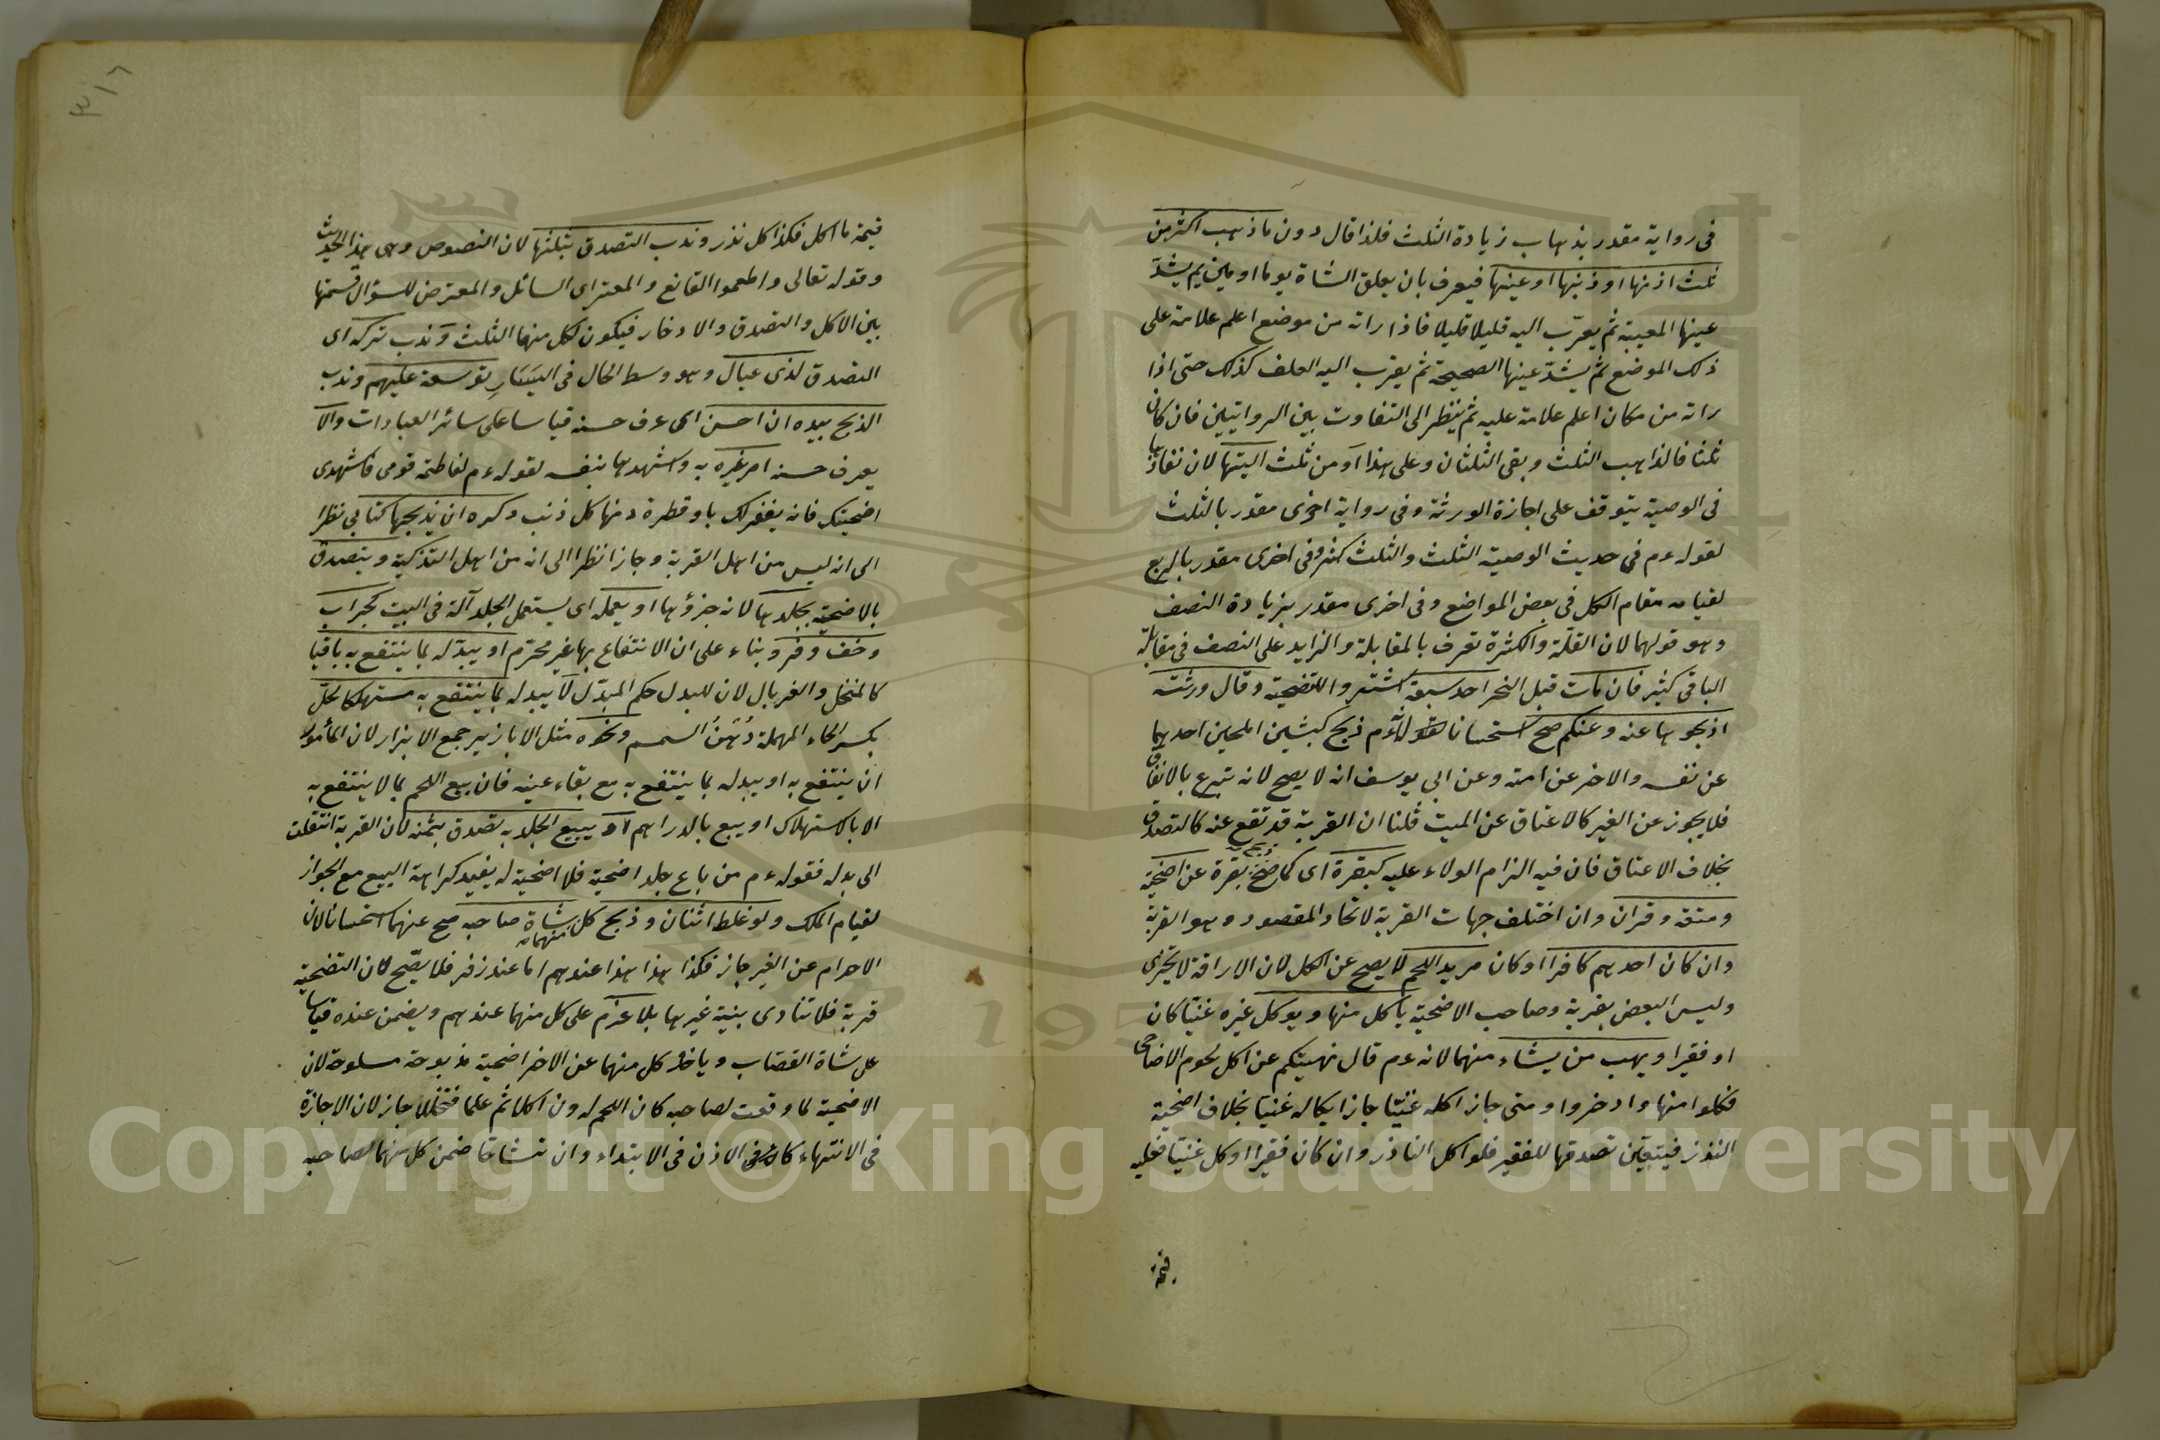 في رواية مقدر بذهاب زيادة الثلث فلذا قال دون ما ذهب اكثر من
ثلث اذنها او ذنبها او عينها فيعرف بان يعلق الشاة يوما او يومين ثم يشد
عينها المعيبة ثم يقرب اليه قليلا قليلا فاذا راته من موضع اعلم علامة على
ذلك الموضع ثم يشد عينها الصحيحة ثم يقرب اليه العلف كذلك حتى اذا
راته من مكان اعلم علامة عليه ثم ينظر الى التفاوت بين الروايتين فان كان
ثلثا فالذاهب الثلث وبقى الثلثان وعلى هذا او من ثلث اليتها لان نفاذها
في الوصية يتوقف على اجازة الورثة وفي رواية اخرى مقدر بالثلث
لقوله عم في حديث الوصية الثلث والثلث كثير وفي اخرى مقدر بالربع
لقيامه مقام الكل في بعض المواضع وفي اخرى مقدر بزيادة النصف
وهو قولهما لان القلة والكثرة تعرف بالمقابلة والزايد على النصف في مقابلة
الباقي كثير فان مات قبل النحر احد سبعة اشتروا للتضحية وقال ورثته
اذبحوها عنه وعنكم صح استحسانا لانه عم ذبح كبشين املحين احدهما
عن نفسه والاخر عن امته وعن ابي يوسف انه لا يصح لانه تبرع بالاتفاق
فلا يجوز عن الغير كالاعتاق عن الميت قلنا ان القربة قد تقع عنه كالتصدق
بخلاف الاعتاق فان فيه الزام الولاء عليه كبقرة اى كما صح ذبح بقرة عن اضحية
ومتعة وقران وان اختلف جهات القربة لاتحاد المقصود وهو القربة
وان كان احدهم كافرا او كان مريد اللحم لا يصح عن الكل لان الاراقة لا تتجزى
وليس البعض بقربة وصاحب الاضحية ياكل منها ويوكل غيره غنيا كان
او فقيرا ويهب من يشاء منهما لانه عم قال نهيتكم عن اكل لحوم الاضاحي
فكلوا منها وادخروا ومتى جاز اكله غنيا جاز ايكاله غنيا بخلاف اضحية
النذر فيتعين تصدقها للفقير فلو اكل الناذر وان كان فقيرا او كل غنيا فعليه
قيمة
٣١٦
قيمة ما اكل فكذا كل نذر وندب التصدق بثلثها لان النصوص وهى هذا الحديث
وقوله تعالى واطعموا القانع والمعتر اى السائل والمعترض للسؤال قسمتها
بين الاكل والتصدق والادخار فيكون لكل منها الثلث وندب تركه اى
التصدق لذى عيال وهو وسط الحال في اليسار توسعة عليهم وندب
الذبح بيده ان احسن اى عرف حسنه قياسا على سائر العبادات والا
يعرف حسنه امر غيره به واشهدها بنفسه لقوله عم لفاطمة قومى فاشهدى
اضحيتك فانه يغفر لك باو قطرة دمها كل ذنب وكره ان يذبحها كتابي نظرا
الى انه ليس من اهل القربة وجاز نظرا الى انه من اهل التذكية ويتصدق
بالاضحية بجلدها لانه جزؤها او يعمله اى يستعمل الجلد آلة في البيت كجراب
وخف وفرو بناء على ان الانتفاع بها غير محترم او يبدله بما ينتفع به باقيا
كالمنخل والغربال لان للبدل حكم المبدل لا يبدله بما ينتفع به مستهلكا كخل
بكسر الحاء المهملة دهن السمسم ونحوه مثل الابازير جمع الابزار لان المأمور
ان ينتفع به او يبدله بما ينتفع به مع بقاء عينه فان بيع اللحم بما لا ينتفع به
الا بالاستهلاك او يبع بالدراهم او يبيع الجلد به تصدق بثمنه لان القربة انتقلت
الى بدله فقوله عم من باع جلد اضحية فلا اضحية له يفيد كراهة البيع مع الجواز
لقيام الملك ولو غلط اثنان وذبح كل منهما شاة صاحبه صح عنهما استحسانا لان
الاحرام عن الغير جاز فكذا هذا هذا عندهم اما عند زفر فلا يصح لان التضحية
قربة فلا تتادى بنية غيرها بلا غرم على كل منهما عندهم ويضمن عنده قياسا
على شاة القصاب وياخذ كل منهما عن الاخر اضحية مذبوحة مسلوخة لان
الاضحية لما وقعت لصاحبه كان اللحم له ون اكلا ثم علما فتحللا جاز لان الاجازة
في الانتهاء كان في الاذن في الابتداء وان تشاحا ضمن كل منهما لصاحبه
Copyright © King Saud University
195